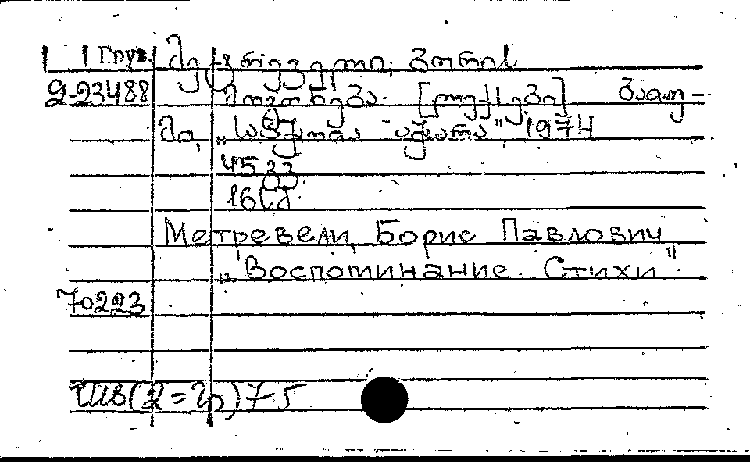 Груз. მეტრეველი, ბორის
2-23488 მოგონება. [ლექსები] ბათუ-
მი, „საბჭოთა აჭარა", 1974
45 გვ.
16 სმ.
Метревели, Борис Павлович
„Воспоминание. Стихи"
70223
7-5